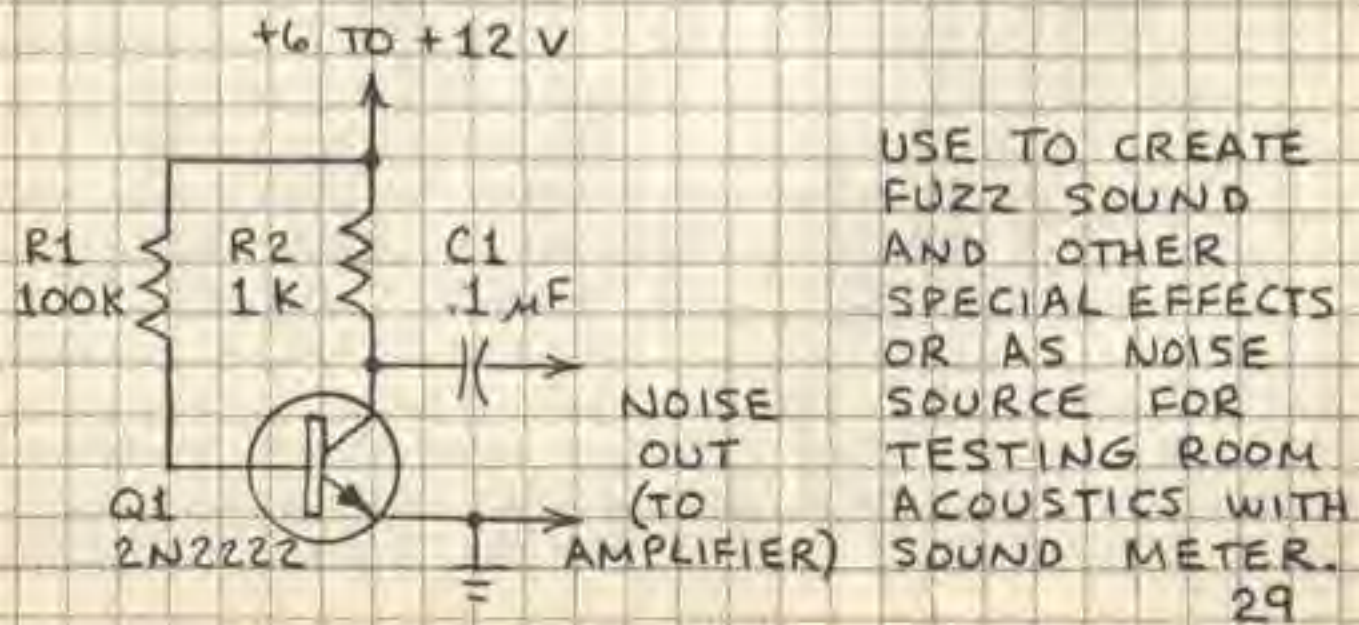 +6 TO +12 V
R1
100K
R2
1K
C1
.1 μF
Q1
2N2222
NOISE
OUT
(TO
AMPLIFIER)
USE TO CREATE
FUZZ SOUND
AND OTHER
SPECIAL EFFECTS
OR AS NOISE
SOURCE FOR
TESTING ROOM
ACOUSTICS WITH
SOUND METER.
29